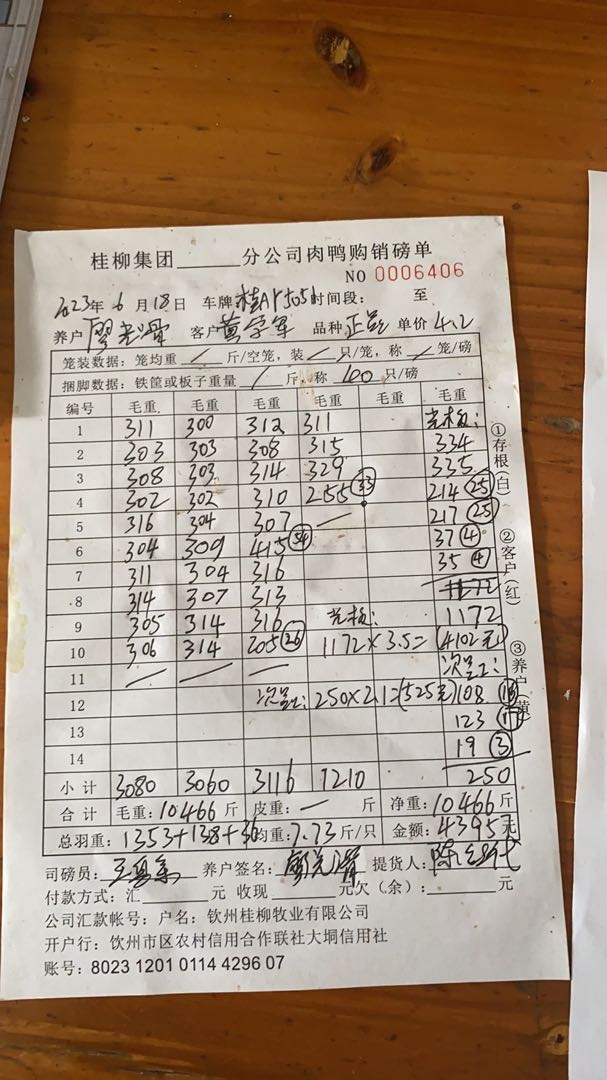 桂柳集团______分公司肉鸭购销磅单
NO 0006406
2023年 6 月 18 日 车牌 桂A 时间段： 至
养户 廖 客户 黄学军 品种 正品 单价 4.2
笼装数据：笼均重 / 斤/空笼，装 / 只/笼，称 / 笼/磅
捆脚数据：铁筐或板子重量 / 斤，称 100 只/磅
编号 毛重 毛重 毛重 毛重 毛重 毛重
1 311 300 312 311 光板：
2 303 303 308 315 334
3 308 303 314 329 335
4 302 302 310 255 (33) 214 (25)
5 316 304 307 / 217 (25)
6 304 309 415 (34) 37 (4)
7 311 304 316 35 (4)
8 314 307 313 1172
9 305 314 316 光板： 1172
10 306 314 205 (26) 1172×3.5= (4102元)
11 / / / 次品：
12 次品： 250×2.1=(525元) 108
13 123
14 19 (3)
小计 3080 3060 3116 1210 250
合计 毛重：10466 斤 皮重： / 斤 净重：10466 斤
总羽重：1353+138+36 均重：7.73 斤/只 金额：43957元
司磅员： 养户签名： 提货人：陈
付款方式：汇______元 收现______元欠（余）：______元
公司汇款帐号：户名：钦州桂柳牧业有限公司
开户行：钦州市区农村信用合作联社大垌信用社
账号：8023 1201 0114 4296 07
①存根(白)
②客户(红)
③养户(黄)